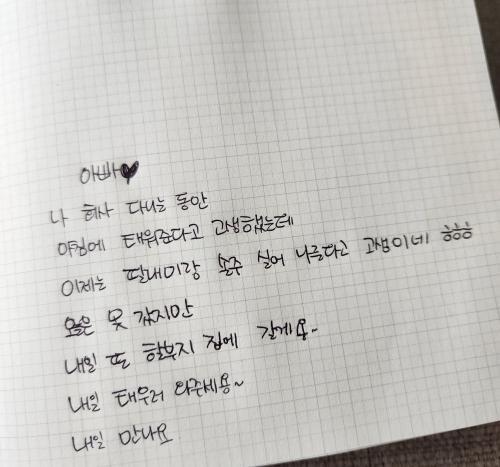 아빠♥
나 회사 다니는 동안
아침에 태워준다고 고생했는데
이제는 딸내미랑 손주 실어 나른다고 고생이네 흥흥흥
오늘은 못 갔지만
내일 또 할부지 집에 갈게용~
내일 태우러 와주세용~
내일 만나요